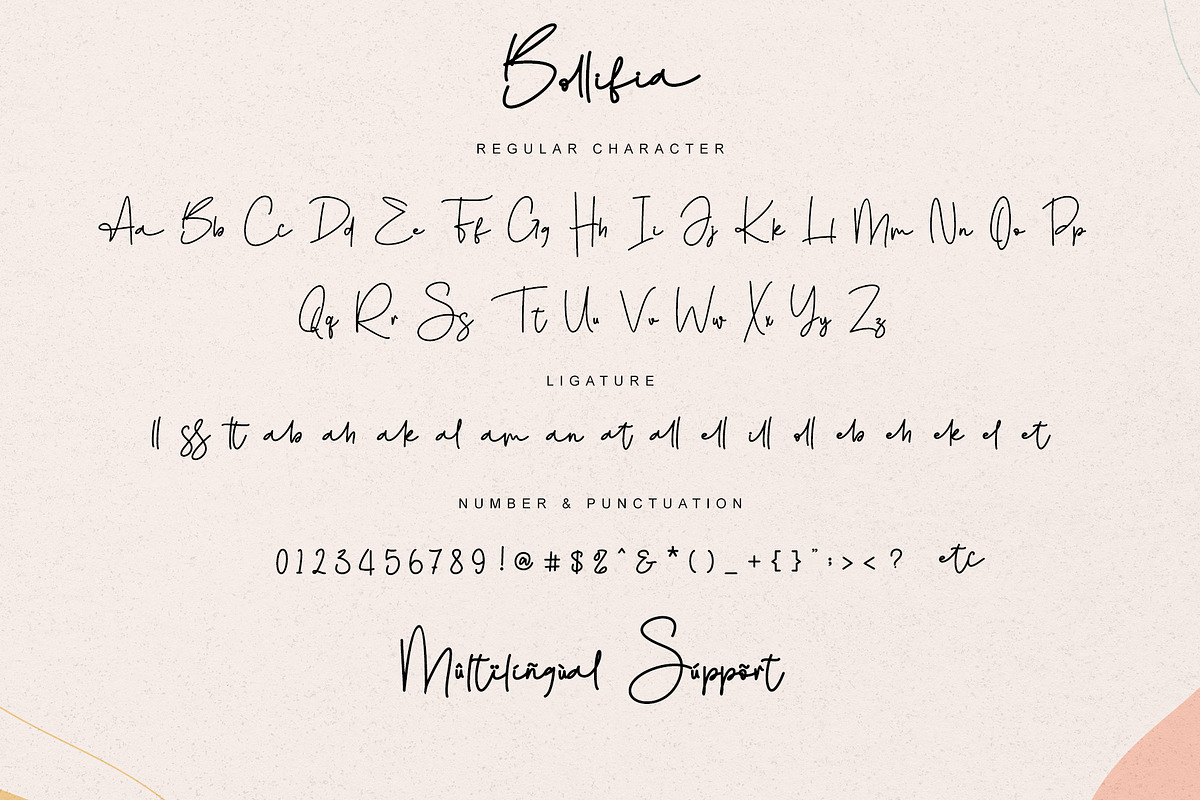 Bollifia
REGULAR CHARACTER
Aa Bb Cc Dd Ee Ff Gg Hh Ii Jj Kk Ll Mm Nn Oo Pp
Qq Rr Ss Tt Uu Vv Ww Xx Yy Zz
LIGATURE
ll ss tt ab ah ak al am an at all ell ill oll eb eh ek el et
NUMBER & PUNCTUATION
0123456789!@#$%^&*()_+{}":><? etc
Mûltïlíñgùal Súppõrt